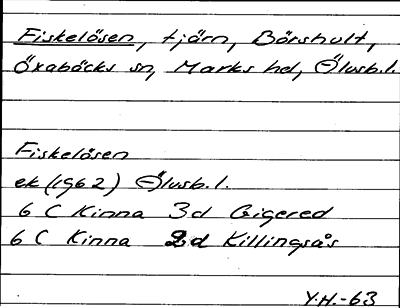 Fiskelösen, tjärn, Börshult,
Öxabäcks sn, Marks hd, Älvsb.l.
Fiskelösen
ek (1962) Älvsb.l.
6 C Kinna 3d Gigered
6 C Kinna 2d Killingsås
Y.H.-63